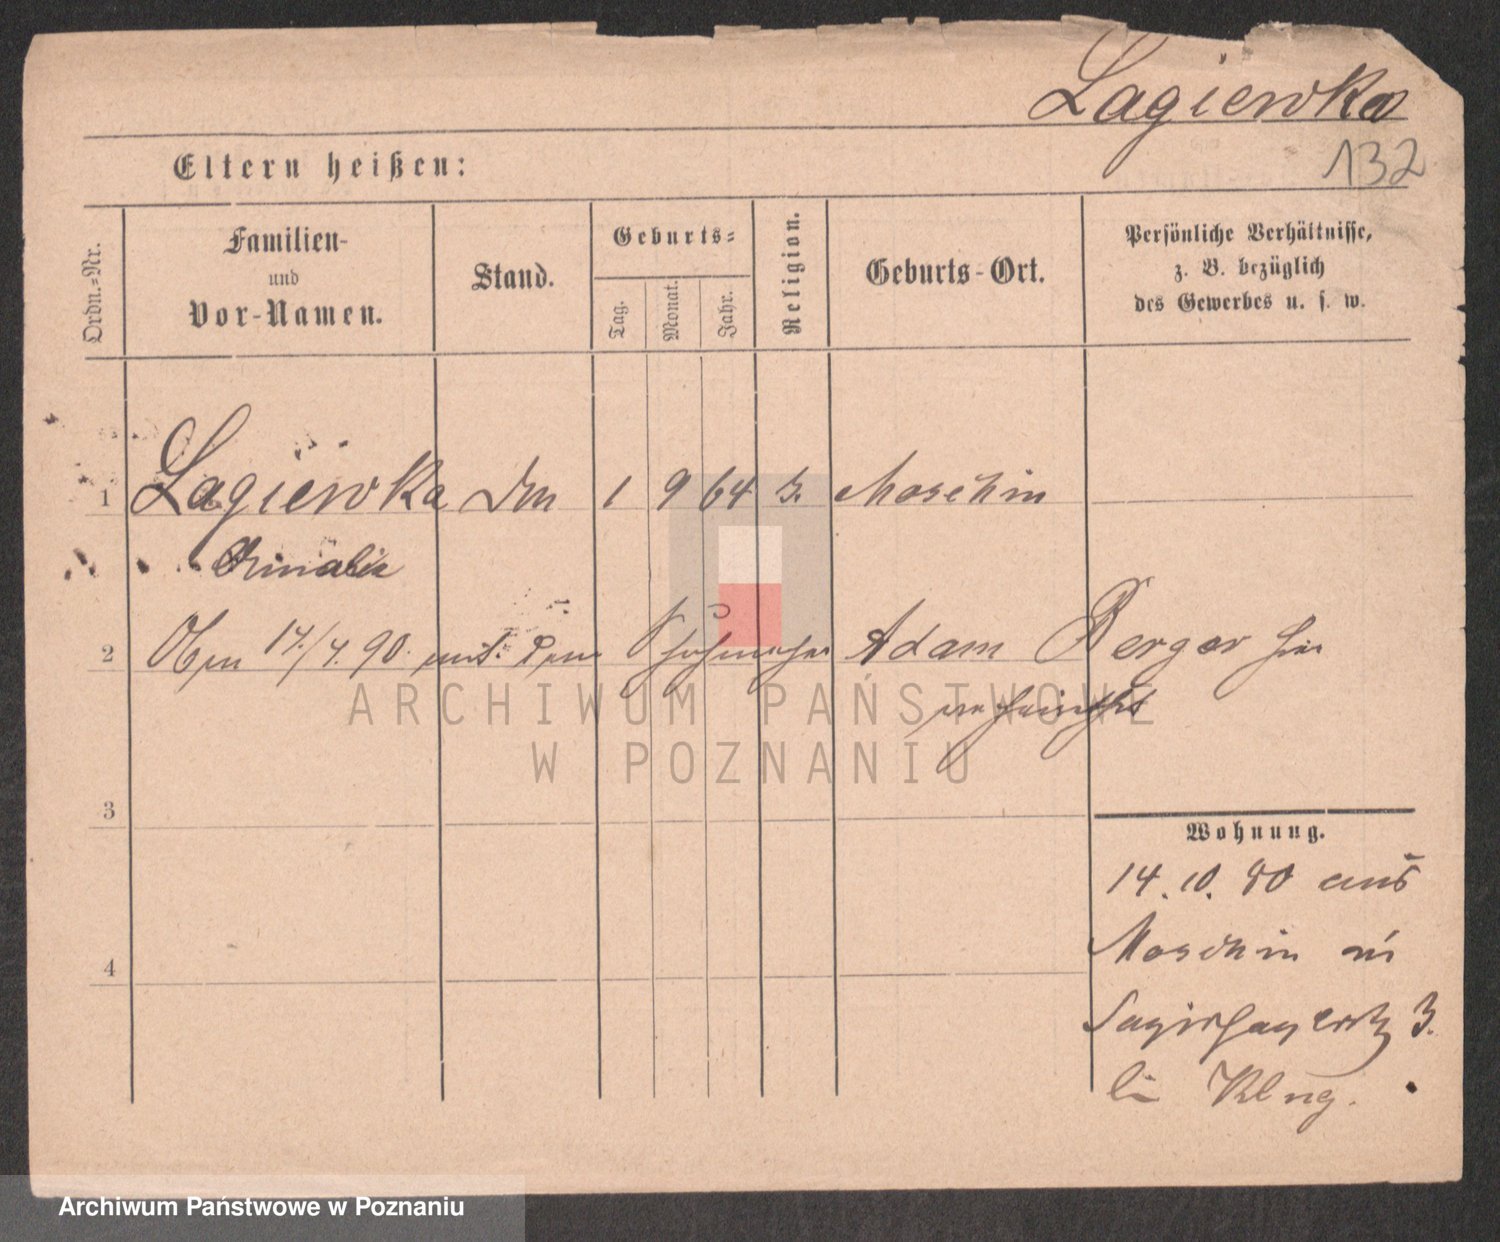 Lagiewka
132
Eltern heißen:
Ordn.-Nr.
Familien-
und
Vor-Namen.
Stand.
Geburts-
Tag.
Monat.
Jahr.
Religion.
Geburts-Ort.
Persönliche Verhältnisse,
z. B. bezüglich
des Gewerbes u. s. w.
1 Lagiewka 1 9 64 Moschin
2 14./4. 90. mit dem Adam Berger hier
verheirathet
ARCHIWUM PAŃSTWOWE
W POZNANIU
3
Wohnung.
14. 10. 80 aus
Moschin in
4
3.
bei
Archiwum Państwowe w Poznaniu